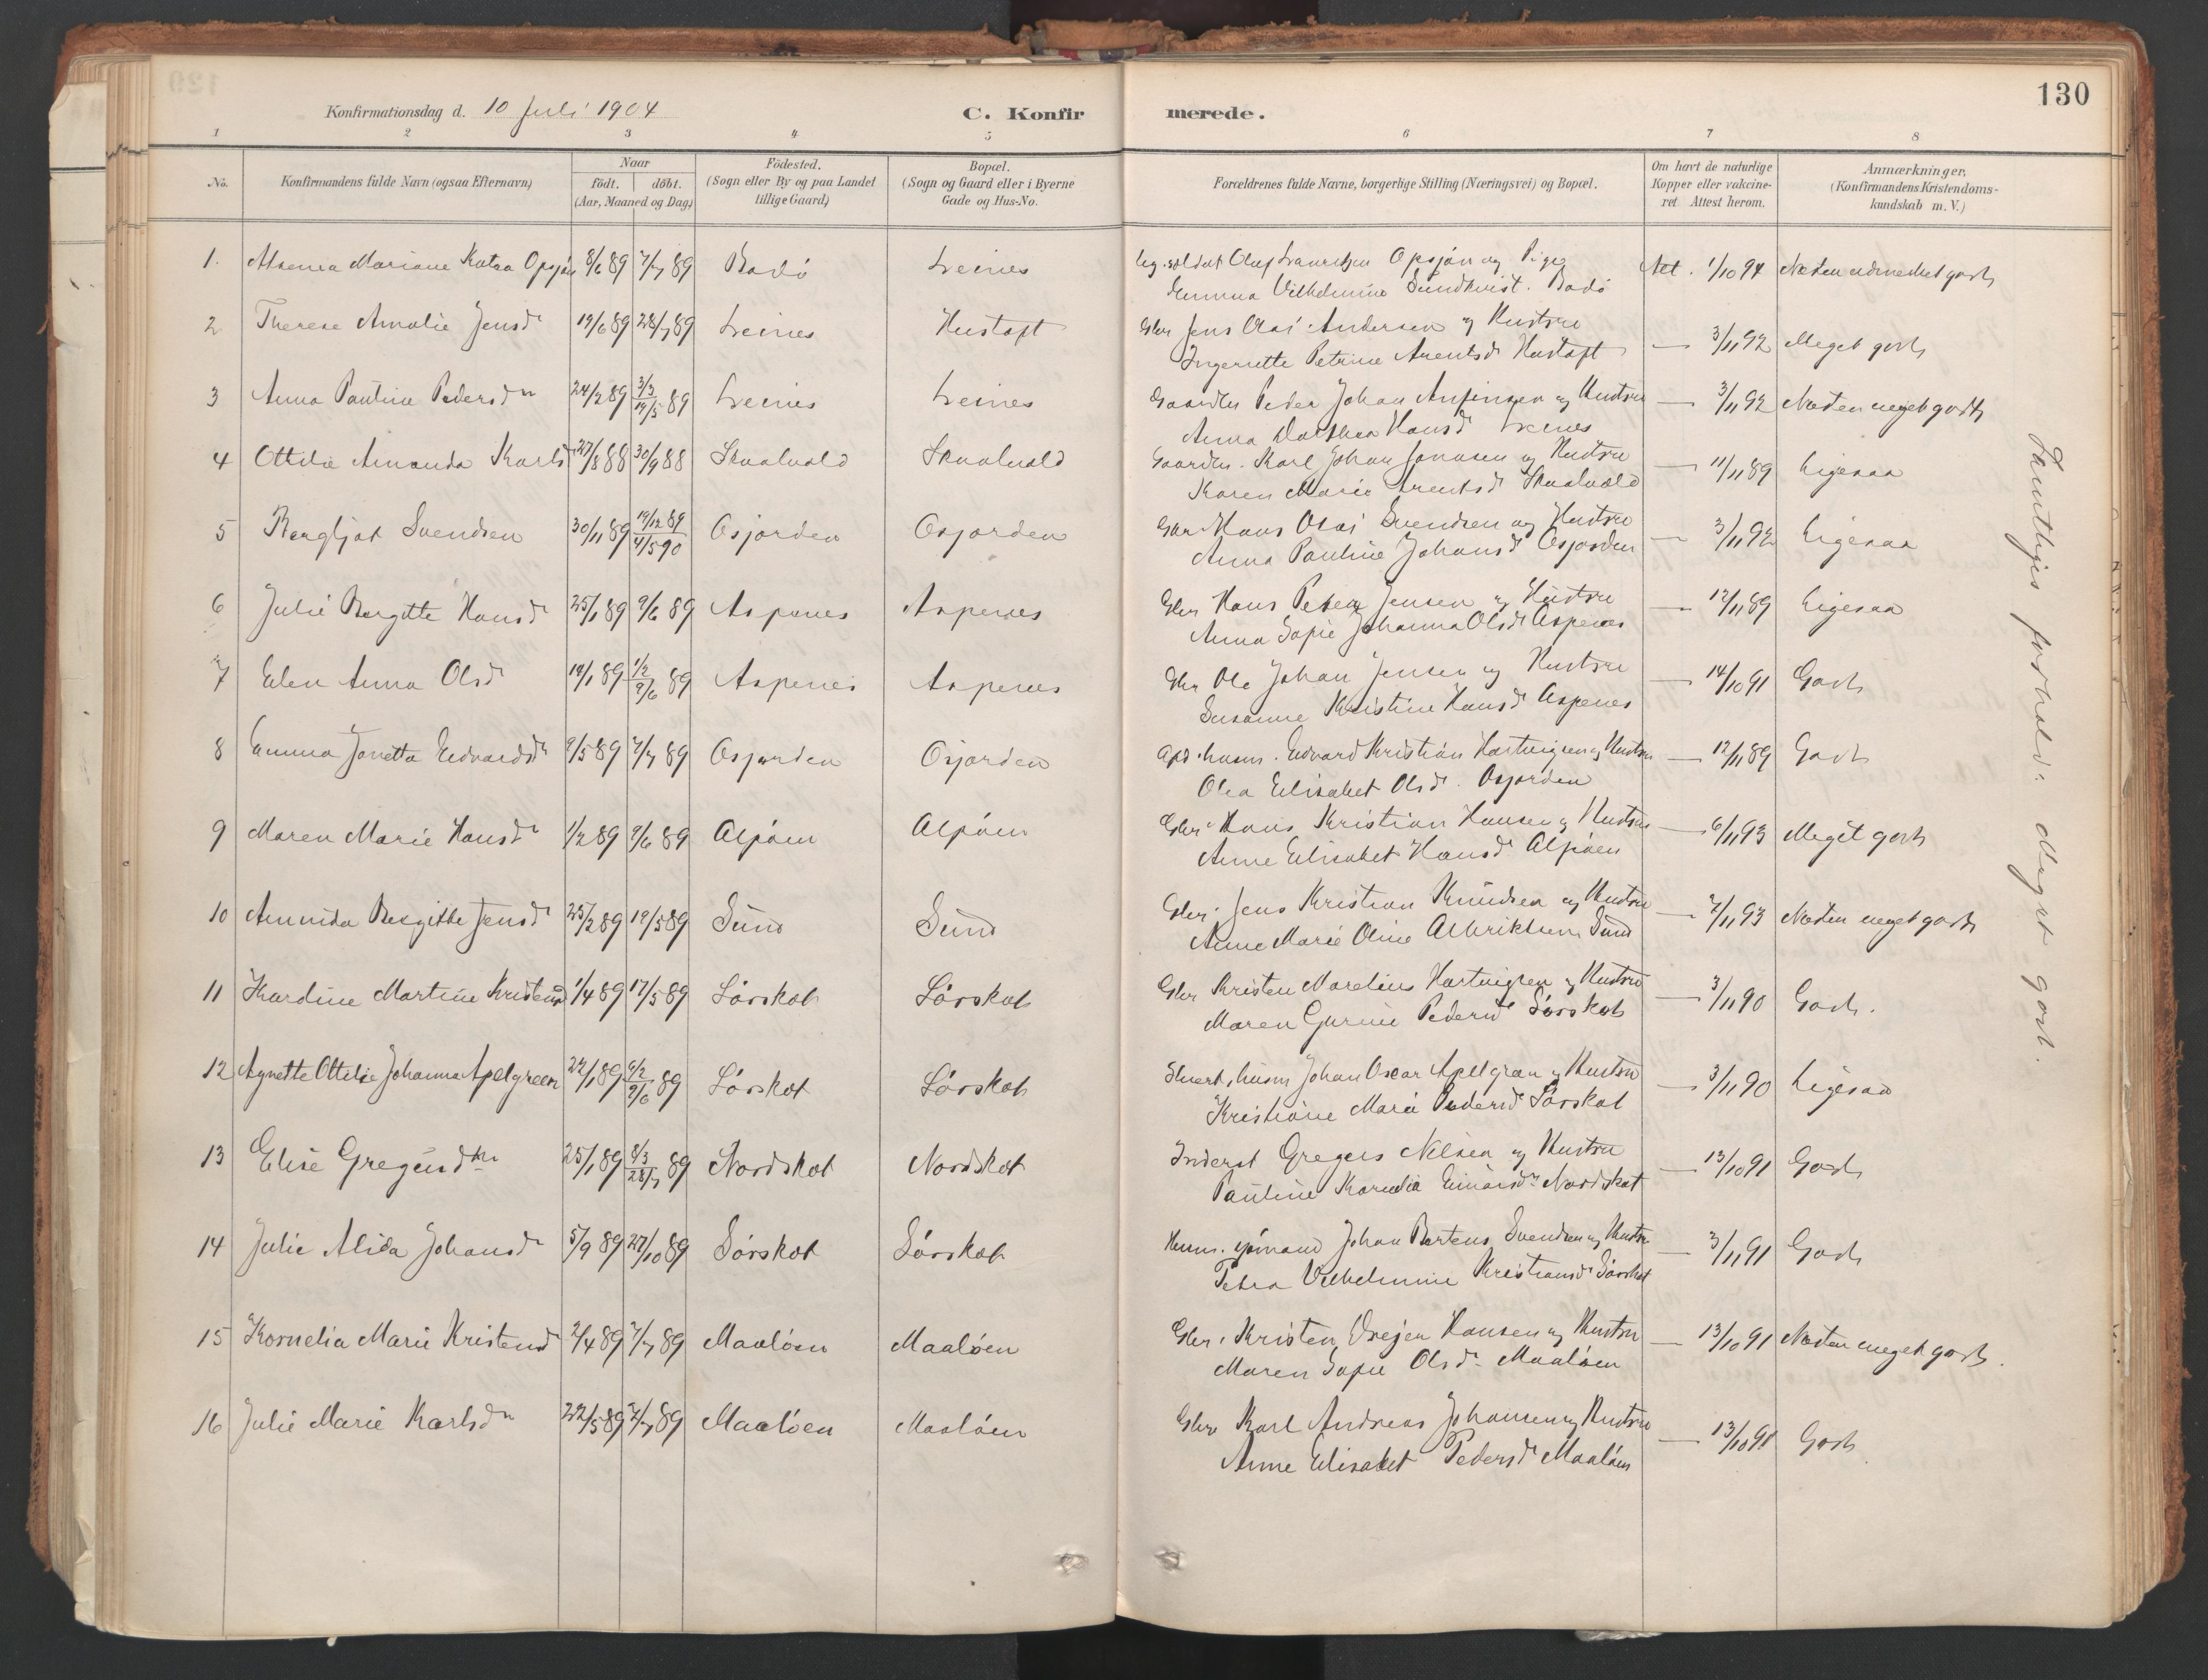 130
Konfirmationsdag d. 10 Juli 1904
C. Konfirmerede.
1 2 3 4 5 6 7 8
No.
Konfirmandens fulde Navn (ogsaa Efternavn)
Naar
födt. döbt.
(Aar, Maaned og Dag)
Födested.
(Sogn eller By og paa Landet
tillige Gaard)
Bopæl.
(Sogn og Gaard eller i Byerne
Gade og Hus-No.
Forældrenes fulde Navne, borgerlige Stilling (Næringsvei) og Bopæl.
Om havt de naturlige
Kopper eller vakcine-
ret Attest herom.
Anmærkninger,
(Konfirmandens Kristendoms-
kundskab m. V.)
1. Mariane Opsjön 8/6 89 7/7 89 Bodö Leines Oluf Opsjön og Pige Att. 1/10 94 Næsten udmerket godt
Vilhelmine Sundkvist. Bodö
2 Therese Amalie Jensdr 19/6 89 28/7 89 Leines Hustoft Gbr Jens Olai Andersen og Hustru — 3/11 92 Meget godt
Petrine Arentsdr Hustoft
3 Anna Pauline Pedersdtr 24/2 89 3/3 19/5 89 Leines Leines Gaardbr Peder Johan og Hustru — 3/11 92 Næsten meget godt
Anna Dorthea Hansdr Leines
4 Ottilie Amanda Karlsdr 27/8 88 30/9 88 Skaalvold Skaalvold Gaardbr. Karl Johan Jonasen og Hustru — 11/11 89 Ligesaa
Karen Marie Arentsdr Skaalvold
5 Bergljot Svendsen 30/11 89 19/12 89 4/5 90 Osjorden Osjorden Gbr. Hans Olai Svendsen og Hustru — 3/11 92 Ligesaa
Anna Pauline Johansdr Osjorden
6 Julie Bergitte Hansdr 25/1 89 9/6 89 Aspenes Aspenes Gbr Hans Peter Jensen og Hustru — 12/11 89 Ligesaa
Anna Sofie Johanna Olsdr Aspenes
7 Elen Anna Olsdr 19/1 89 1/2 9/6 89 Aspenes Aspenes Gbr Ole Johan Jensen og Hustru — 14/10 91 Godt
Susanne Kristine Hansdr Aspenes
8 Emma Jonetta Edvardsdr 9/5 89 7/7 89 Osjorden Osjorden husm. Edvard Kristian Hartvigsen og Hustru — 12/11 89 Godt
Olea Elisabet Olsdr. Osjorden
9 Maren Marie Hansdr 1/2 89 9/6 89 Alpöen Alpöen Gbr. Hans Kristian Hansen og Hustru — 6/11 93 Meget godt
Anne Elisabet Hansdr Alpöen
10 Amunda Bergitte Jensdr 25/2 89 19/5 89 Sund Sund Gbr. Jens Kristian Knudsen og Hustru — 7/11 93 Næsten meget godt
Anne Marie Oline Albriktsen Sund
11 Kardine Martine Kristensdr 1/4 89 17/5 89 Sörskot Sörskot Gbr Kristen Norelius Hartvigsen og Hustru — 3/11 90 Godt.
Maren Gurine Pedersdr Sörskot
12 Agnette Ottilie Johanna Apelgreen 22/1 89 9/6 89 Sörskot Sörskot husm Johan Oscar Apelgren og Hustru — 3/11 90 Ligesaa
Kristiane Marie Pedersdr Sörskot
13 Elise Gregersdtr 25/1 89 8/3 28/7 89 Nordskot Nordskot Inderst Gregers Nilsen og Hustru — 13/10 91 Godt
Pauline Kornelia Nordskot
14 Julie Alida Johansdr 5/9 89 27/10 89 Sörskot Sörskot Husm. Johan Bertens Svendsen og Hustru — 3/11 91 Godt
Petra Vilhelmine Kristiansdr Sörskot
15 Kornelia Marie Kristensdr 2/4 89 7/7 89 Maalöen Maalöen Gbr. Kristen Hansen og Hustru — 13/10 91 Næsten meget godt.
Maren Sofie Olsdr Maalöen
16 Julie Marie Karlsdr 22/5 89 7/7 89 Maalöen Maalöen Gbr Karl Andreas Johansen og Hustru — 13/10 91 Godt
Anne Elisabet Pedersdr Maalöen
Samtliges forhold: Meget godt.